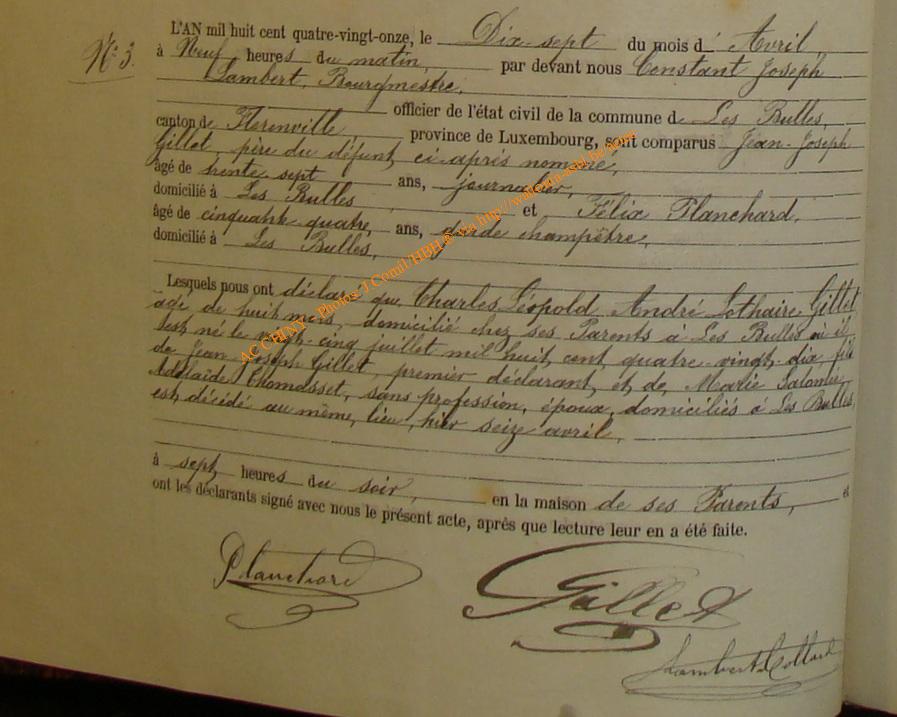 N° 3.
L'AN mil huit cent quatre-vingt-onze, le Dix-sept du mois d' Avril,
à Neuf heures du matin, par devant nous Constant Joseph
Lambert, Bourgmestre,
officier de l'état civil de la commune d Les Bulles,
canton de Florenville, province de Luxembourg, sont comparus Jean-Joseph
Gillet, père du défunt, ci-après nommé,
âgé de trente sept ans, journalier,
domicilié à Les Bulles et Félix Planchard,
âgé de cinquante quatre, ans, garde champêtre,
domicilié à Les Bulles,
Lesquels nous ont déclaré que Charles Léopold, André Lothaire, Gillet
âgé de huit mois, domicilié chez ses Parents à Les Bulles où il
est né le vingt-cinq juillet mil huit cent quatre-vingt-dix, fils
de Jean-Joseph Gillet, premier déclarant, et de Marie Salomée
Adelaïde Thomasset, sans profession, époux, domiciliés à Les Bulles,
est décédé au même, lieu, hier seize avril,
à sept heures du soir, en la maison de ses Parents, et
ont les déclarants signé avec nous le présent acte, après que lecture leur en a été faite.
Planchard
Gillet
Lambert-Collard
AC CHINY - Photos: J Comil/HBH ® via http://watervia.ashi.be.com